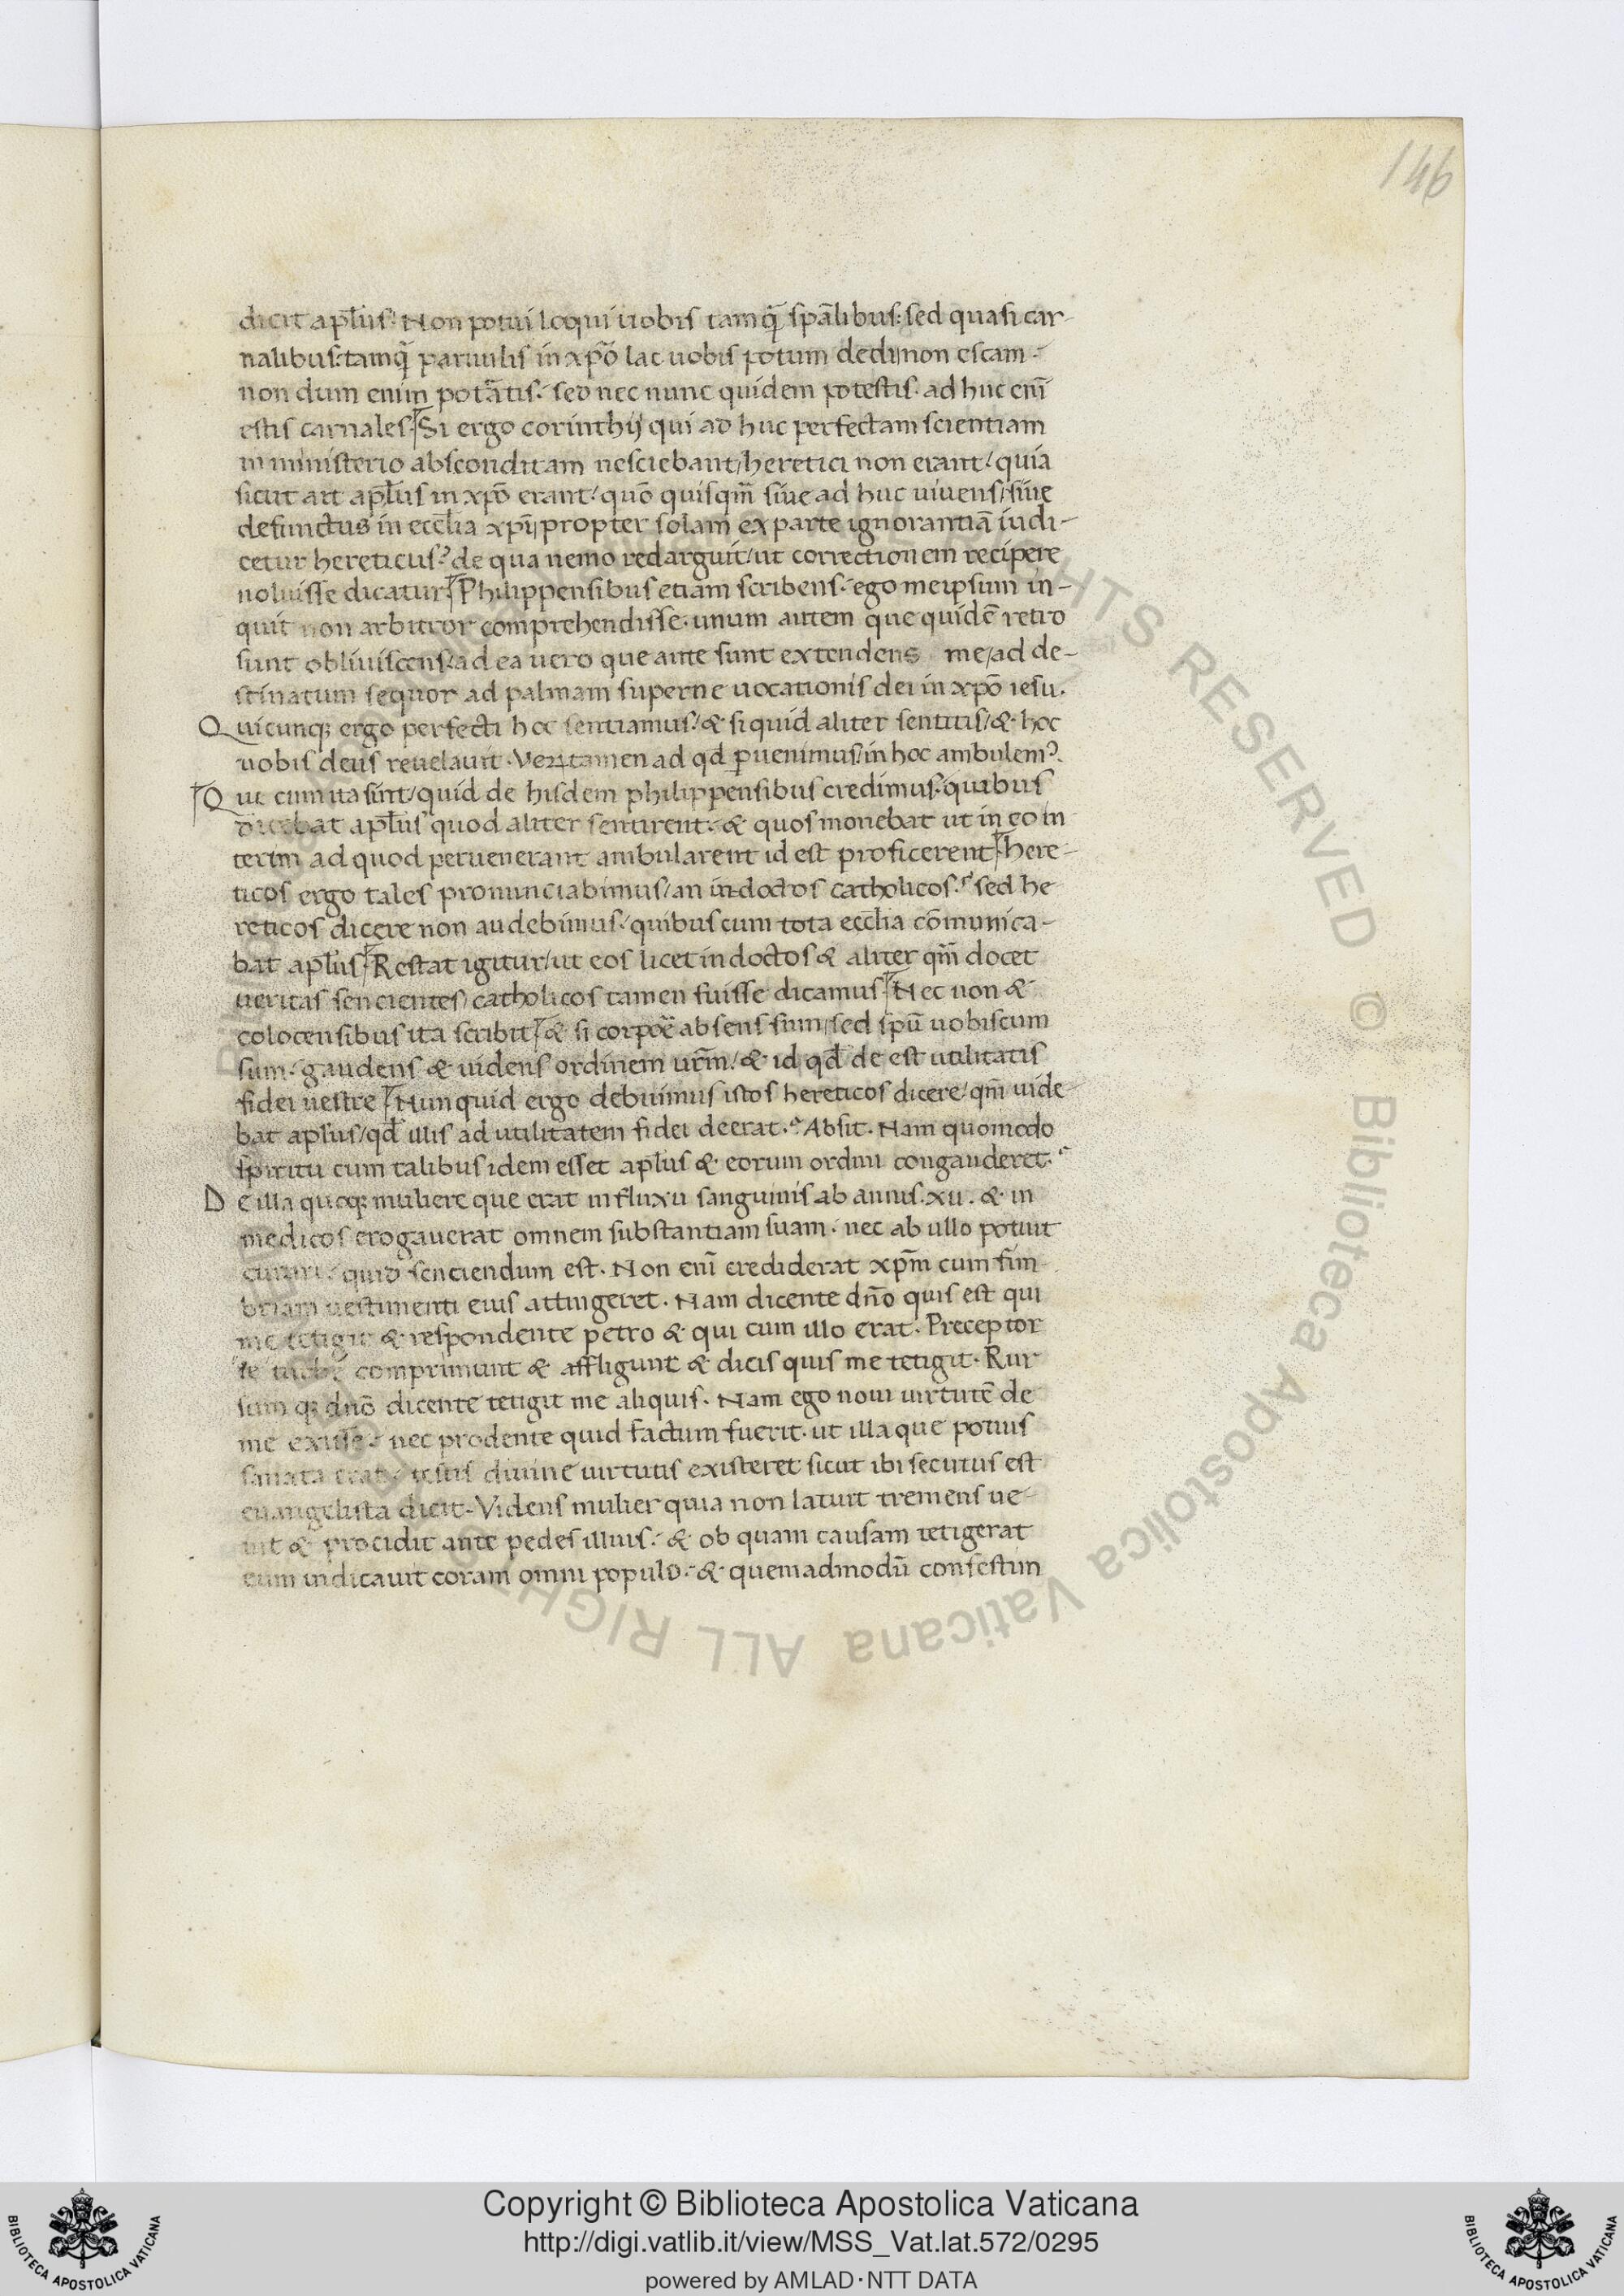 146
dicit apl̄us. Non potui loqui uobis tamq̄ spālibus: sed quasi car-
nalibus: tamq̄ paruulis in xpō lac uobis potum dedi non escam.
non dum enim potātis. sed nec nunc quidem potestis. ad huc enī
estis carnales. Si ergo corinthij qui ad huc perfectam scientiam
in ministerio absconditam nesciebant/ heretici non erant/ quia
sicut ait apl̄us in xpō erant/ quō quisqm̄ siue ad huc uiuens/ siue
defunctus in eccl̄ia xpī propter solam ex parte ignorantiā iudi-
cetur hereticus? de qua nemo redarguit/ ut correctionem recipere
noluisse dicatur. Philippensibus etiam scribens. ego meipsum in-
quit non arbitror comprehendisse. unum autem que quidē retro
sunt obliuiscens/ ad ea uero que ante sunt extendens me/ ad de-
stinatum sequor ad palmam superne uocationis dei in xpō iesu.
Quicunq; ergo perfecti hoc sentiamus/ & si quid aliter sentitis/ & hoc
uobis deus reuelauit. Veꝝtamen ad qd̄ ꝑuenimus/ in hoc ambulemꝰ.
Que cum ita sint/ quid de hisdem philippensibus credimus. quibus
dicebat apl̄us quod aliter sentirent. & quos monebat ut in eo in
terim ad quod peruenerant ambularent id est proficerent. here-
ticos ergo tales pronunciabimus/ an indoctos catholicos? sed he
reticos dicere non audebimus/ quibus cum tota eccl̄ia cōmunica-
bat apl̄us. Restat igitur/ ut eos licet indoctos & aliter qm̄ docet
ueritas sencientes catholicos tamen fuisse dicamus. Nec non &
colocensibus ita scribit & si corpoē absens sum/ sed spū uobiscum
sum. gaudens & uidens ordinem ur̄m/ & id qd̄ de est utilitatis
fidei uestre. Nunquid ergo debuimus istos hereticos dicere/ qm̄ uide-
bat apl̄us/ qd̄ illis ad utilitatem fidei deerat? Absit. Nam quomodo
spiritu cum talibus idem esset apl̄us & eorum ordini congauderet?
De illa quoq; muliere que erat in fluxu sanguinis ab annis .xii. & in
medicos erogauerat omnem substantiam suam. nec ab ullo potuit
curari. quid senciendum est. Non enī crediderat xpm̄ cum fim-
briam uestimenti eius attingeret. Nam dicente dn̄o quis est qui
me tetigit & respondente petro & qui cum illo erat. Preceptor
te turbe comprimunt & affligunt & dicis quis me tetigit. Rur
sum q; dn̄o dicente tetigit me aliquis. Nam ego noui uirtutē de
me exiisse. nec prodente quid factum fuerit. ut illa que potius
sanata erat. testis diuine uirtutis existeret sicut ibi secutus est
euangelista dicit. Videns mulier quia non latuit tremens ue-
nit & procidit ante pedes illius. & ob quam causam tetigerat
eum indicauit coram omni populo. & quemadmodū confestim
© Biblioteca Apostolica Vaticana ALL RIGHTS RESERVED
Copyright © Biblioteca Apostolica Vaticana
http://digi.vatlib.it/view/MSS_Vat.lat.572/0295
powered by AMLAD·NTT DATA
BIBLIOTECA APOSTOLICA VATICANA
BIBLIOTECA APOSTOLICA VATICANA